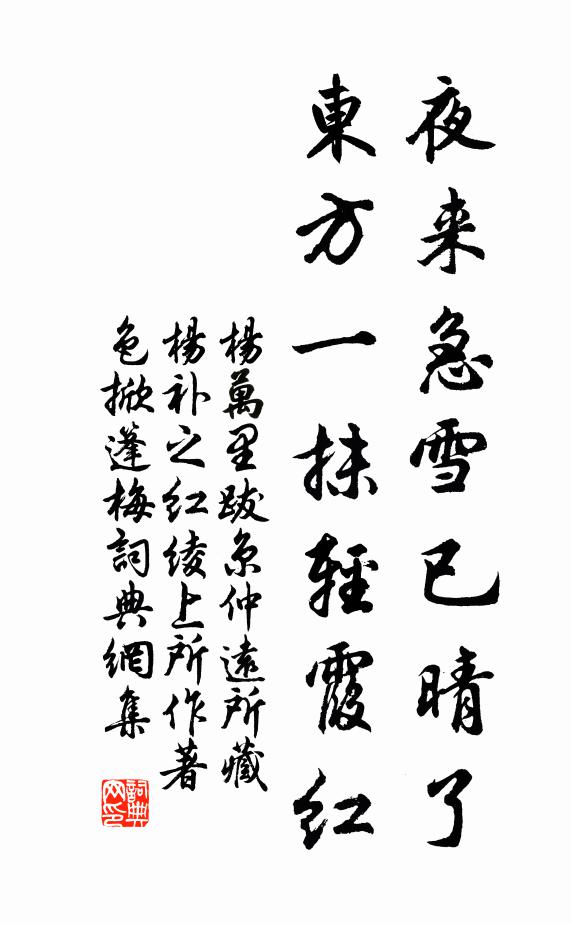 夜来急雪已晴了
東方一抹輕霞红
楊萬里跋京仲遠所藏
楊补之红綾上所作著
色掀蓬梅詞典網集
詞典
网印